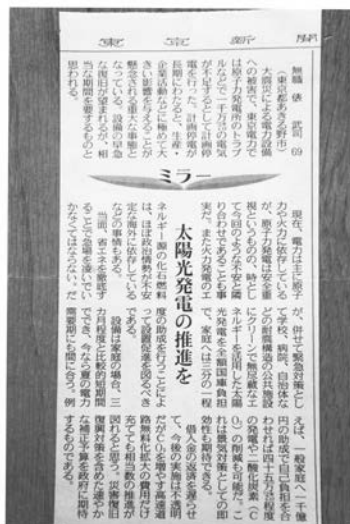 東京新聞
ミラー
太陽光発電の推進を
無職 俵 武司 69
(東京都あきる野市)
大震災による電力設備
への被害で、東京電力で
は原子力発電所のトラブ
ルなどで一千万㌔の電気
が不足するとして計画停
電を行った。計画停電が
長期にわたると、生産・
企業活動などに極めて大
きい影響を与えることが
懸念される重大な事態と
なっている。設備の早急
な復旧が望まれるが、相
当な期間を要するものと
思われる。
現在、電力は主に原子
力や火力に依存している
が、原子力発電は安全重
視というものの、時とし
て今回のような不安と隣
り合わせであることも事
実だ。また火力発電のエ
ネルギー源の化石燃料
は、ほぼ政治情勢が不安
定な海外に依存している
などの事情もある。
当面、省エネを徹底す
ることで急場を凌いでい
かなくてはならない。だ
が、併せて緊急対策とし
て学校、病院、自治体な
どの耐震構造の公共施設
にクリーンで無尽蔵なエ
ネルギーを活用した太陽
光発電を全額国庫負担
で、家庭へは三分の一程
度の助成を行うことによ
って設置促進を図るべき
である。
設備は家庭の場合、三
カ月程度と比較的短期間
ででき、今なら夏の電力
需要期にも間に合う。例
えば、一般家庭へ一千億
円の助成で自己負担を合
わせれば四十五万㌔程度
の発電や二酸化炭素(C
O₂)の削減も可能だ。こ
れは景気対策としての即
効性も期待できる。
借入金の返済を遅らせ
て、今後の実施は不透明
だがCO₂を増やす高速道
路無料化拡大の費用だけ
充てても相当数の推進が
図れると思う。災害復旧
復興対策を含めた速やか
な補正予算を政府に期待
するものである。